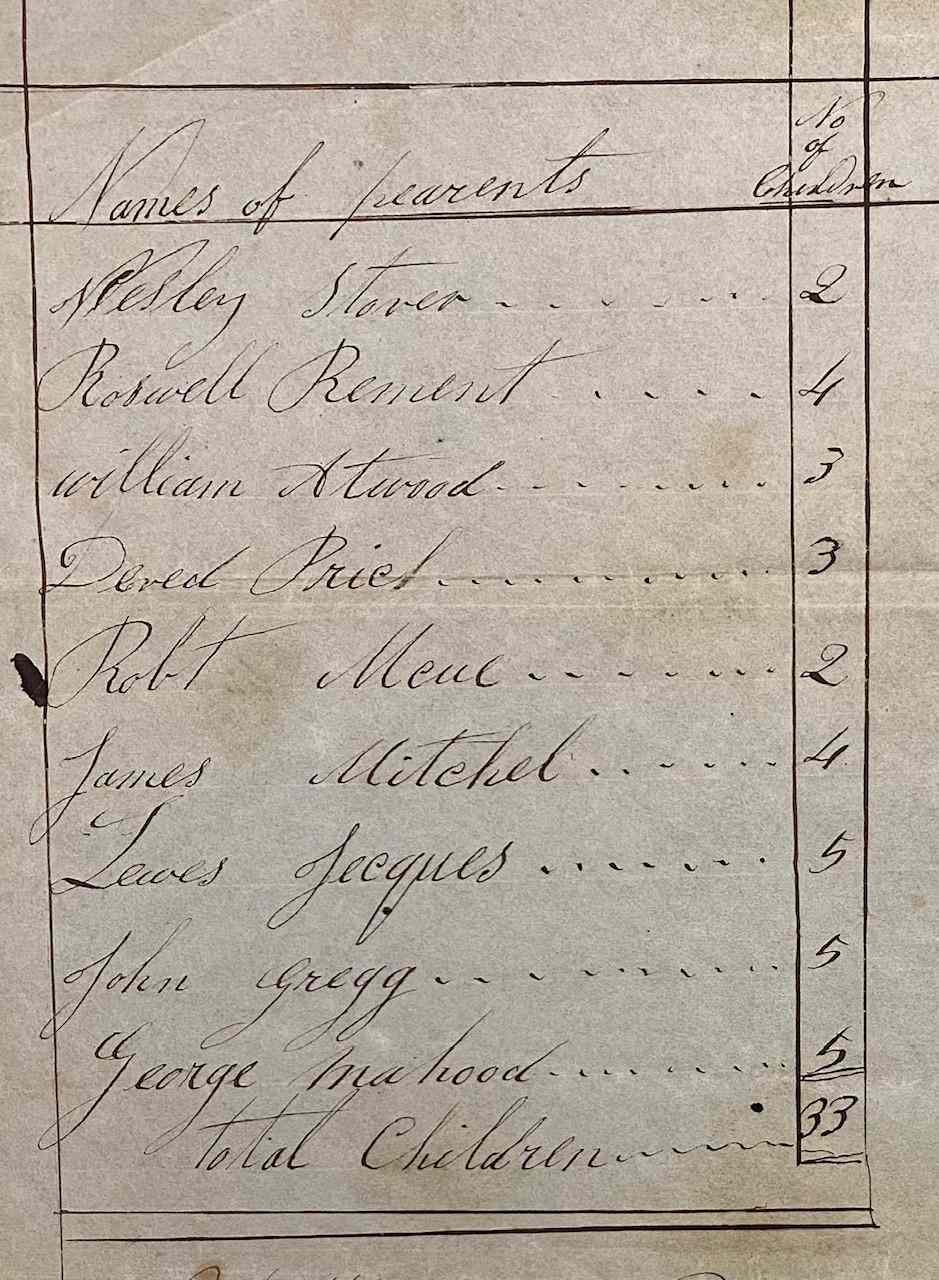 Names of pearents No of Children
Wesley Stover 2
Roswell Rement 4
william Atwood 3
Deved Price 3
Robt 2
James Mitchel 4
Lewes Jecques 5
John Gregg 5
George mahood 5
total Children 33